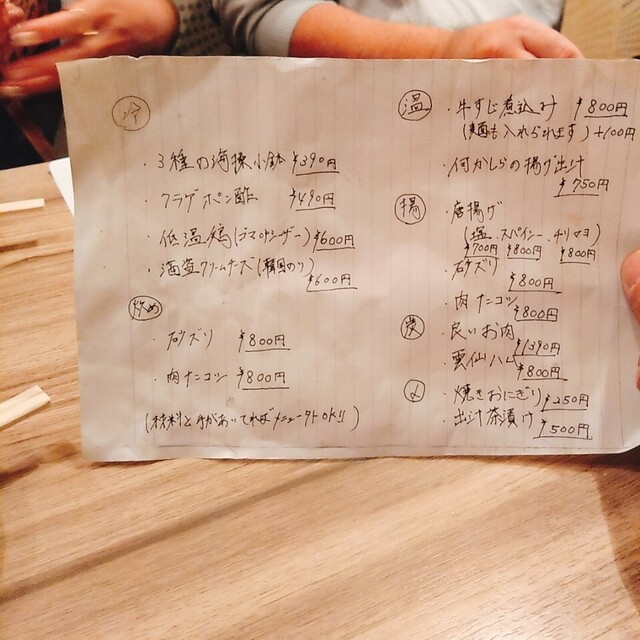 冷
・3種の海棟小鉢 ¥390円
・クラゲポン酢 ¥490円
・低温鶏(ゴマorシーザー) ¥600円
・酒盗クリームチーズ(韓国のり)
¥600円
炒め
・砂ズリ ¥800円
・肉ナンコツ ¥800円
(材料と手があいてれば メニュー OK!!)
温
・牛すじ煮込み ¥800円
(麺も入れられます)+100円
・何かしらの揚げ出汁
¥750円
揚
・唐揚げ
(塩、スパイシー、チリマヨ)
¥700円 ¥800円 ¥800円
・砂ズリ
¥800円
・肉ナンコツ
¥800円
炭
・良いお肉
¥1390円
・雲仙ハム
¥800円
〆
・焼きおにぎり ¥250円
・出汁茶漬け
¥500円